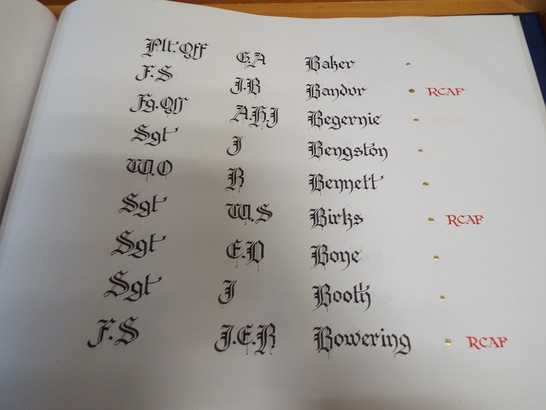 Plt.Off G.A Baker
F.S J.B Bandur RCAF
Fg.Off A.H.J Begernie
Sgt J Bengston
W.O R Bennett
Sgt W.S Birks RCAF
Sgt E.D Bone
Sgt J Booth
F.S J.E.R Bowering RCAF